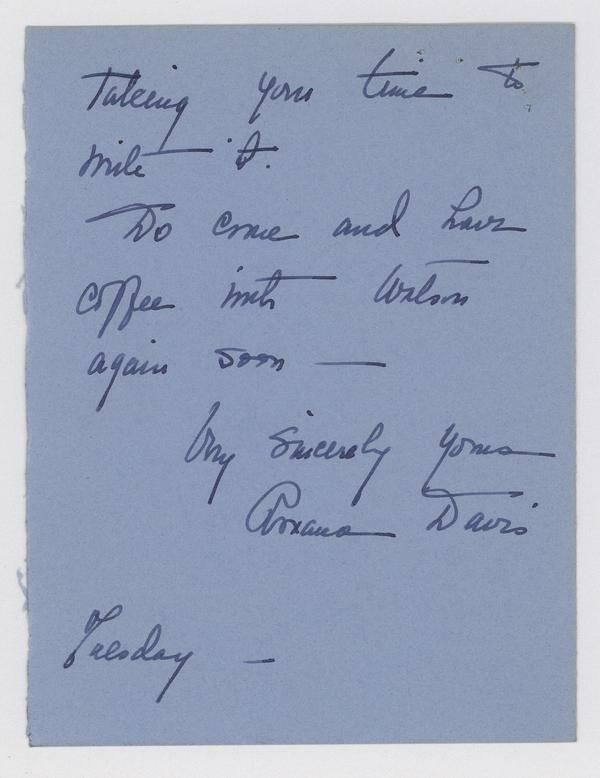 Taking your time to
write it.
Do come and have
coffee with Watson
again soon —
Very Sincerely Yours
Roxana Davis
Tuesday —